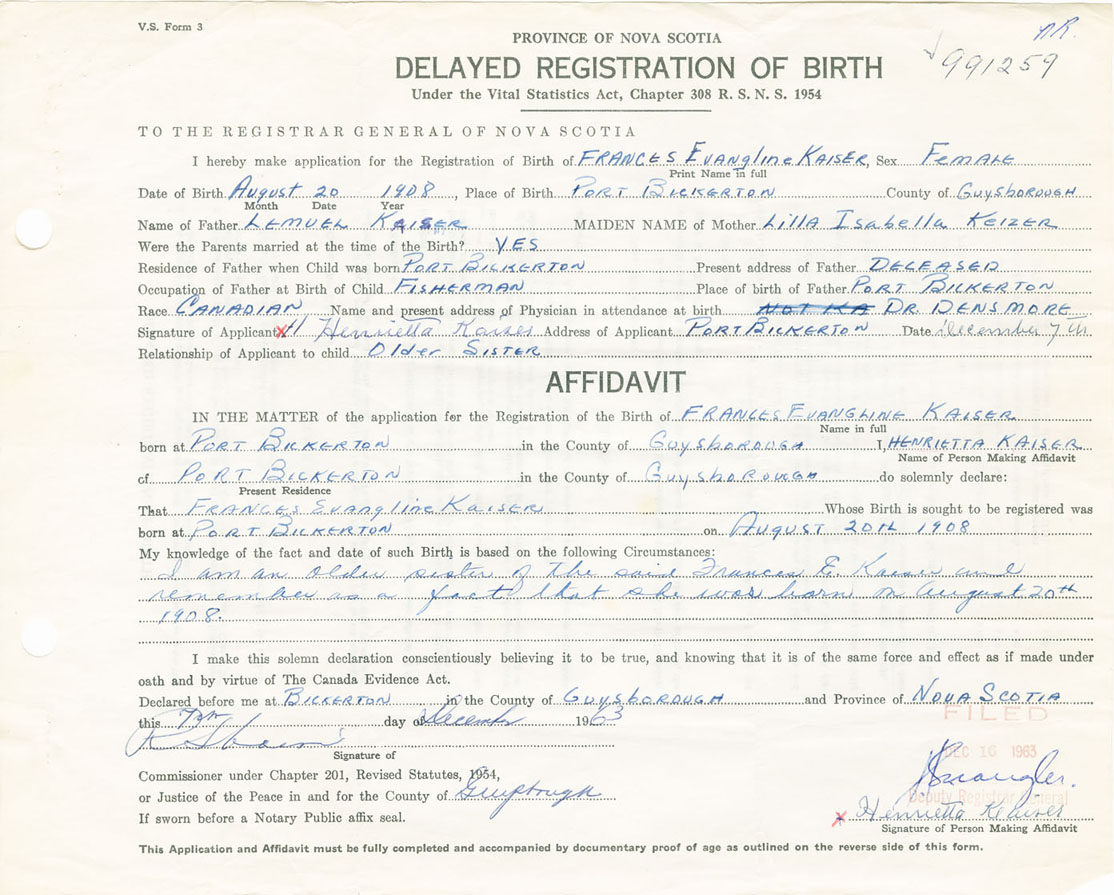 V.S. Form 3
PROVINCE OF NOVA SCOTIA
DELAYED REGISTRATION OF BIRTH
Under the Vital Statistics Act, Chapter 308 R. S. N. S. 1954
991259
TO THE REGISTRAR GENERAL OF NOVA SCOTIA
I hereby make application for the Registration of Birth of FRANCES EVANGLINE KAISER, Sex FEMALE
Print Name in full
Date of Birth AUGUST 20 1908, Place of Birth PORT BICKERTON County of GUYSBOROUGH
Month Date Year
Name of Father LEMUEL KAISER MAIDEN NAME of Mother LILLA ISABELLA KEIZER
Were the Parents married at the time of the Birth? YES
Residence of Father when Child was born PORT BICKERTON Present address of Father DECEASED
Occupation of Father at Birth of Child FISHERMAN Place of birth of Father PORT BICKERTON
Race CANADIAN Name and present address of Physician in attendance at birth DR. DENSMORE
Signature of Applicant x Henrietta Kaiser Address of Applicant PORT BICKERTON Date December 7th
Relationship of Applicant to child OLDER SISTER
AFFIDAVIT
IN THE MATTER of the application for the Registration of the Birth of FRANCES EVANGLINE KAISER
Name in full
born at PORT BICKERTON in the County of GUYSBOROUGH I, HENRIETTA KAISER
Name of Person Making Affidavit
of PORT BICKERTON in the County of GUYSBOROUGH do solemnly declare:
Present Residence
That FRANCES EVANGLINE KAISER Whose Birth is sought to be registered was
born at PORT BICKERTON on AUGUST 20th 1908
My knowledge of the fact and date of such Birth is based on the following Circumstances:
I am an older sister of the said Frances E. Kaiser and
remember as a fact that she was born on August 20th
1908.
I make this solemn declaration conscientiously believing it to be true, and knowing that it is of the same force and effect as if made under
oath and by virtue of The Canada Evidence Act.
Declared before me at BICKERTON in the County of GUYSBOROUGH and Province of NOVA SCOTIA
this 7th day of December 1963
FILED
DEC 16 1963
Signature of
Commissioner under Chapter 201, Revised Statutes, 1954,
or Justice of the Peace in and for the County of Guysborough
Deputy Registrar General
If sworn before a Notary Public affix seal.
x Henrietta Kaiser
Signature of Person Making Affidavit
This Application and Affidavit must be fully completed and accompanied by documentary proof of age as outlined on the reverse side of this form.